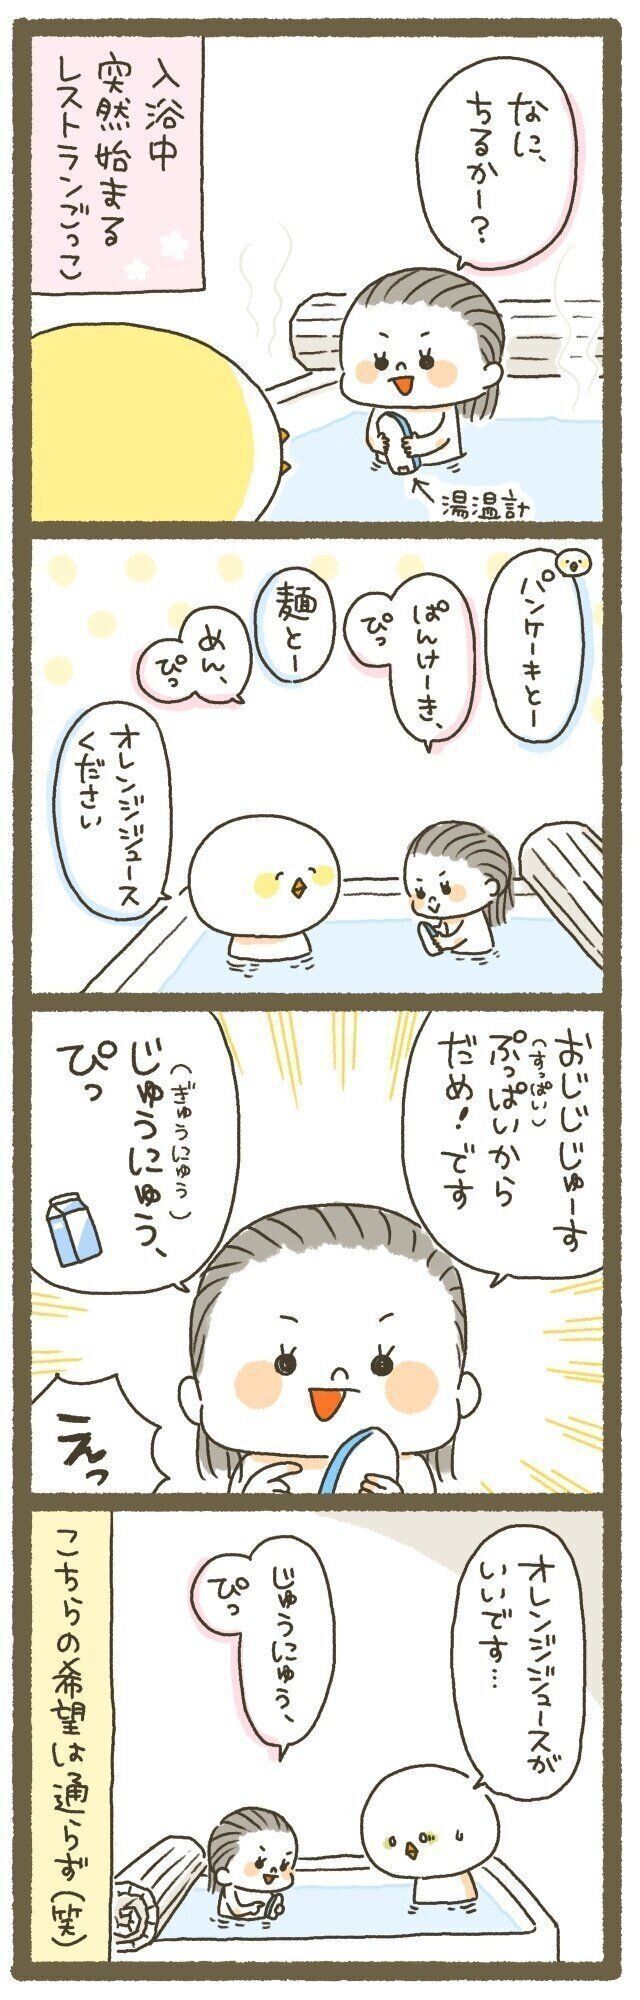 入浴中
突然始まる
レストランごっこ
なに、
ちるかー?
湯温計
パンケーキとー
ぱんけーき、
ぴっ
麺とー
めん、
ぴっ
オレンジジュース
ください
おじじじゅーす
(すっぱい)
ぷっぱいから
だめ!です
(ぎゅうにゅう)
じゅうにゅう、
ぴっ
えっ
オレンジジュースが
いいです…
じゅうにゅう、
ぴっ
こちらの希望は通らず(笑)